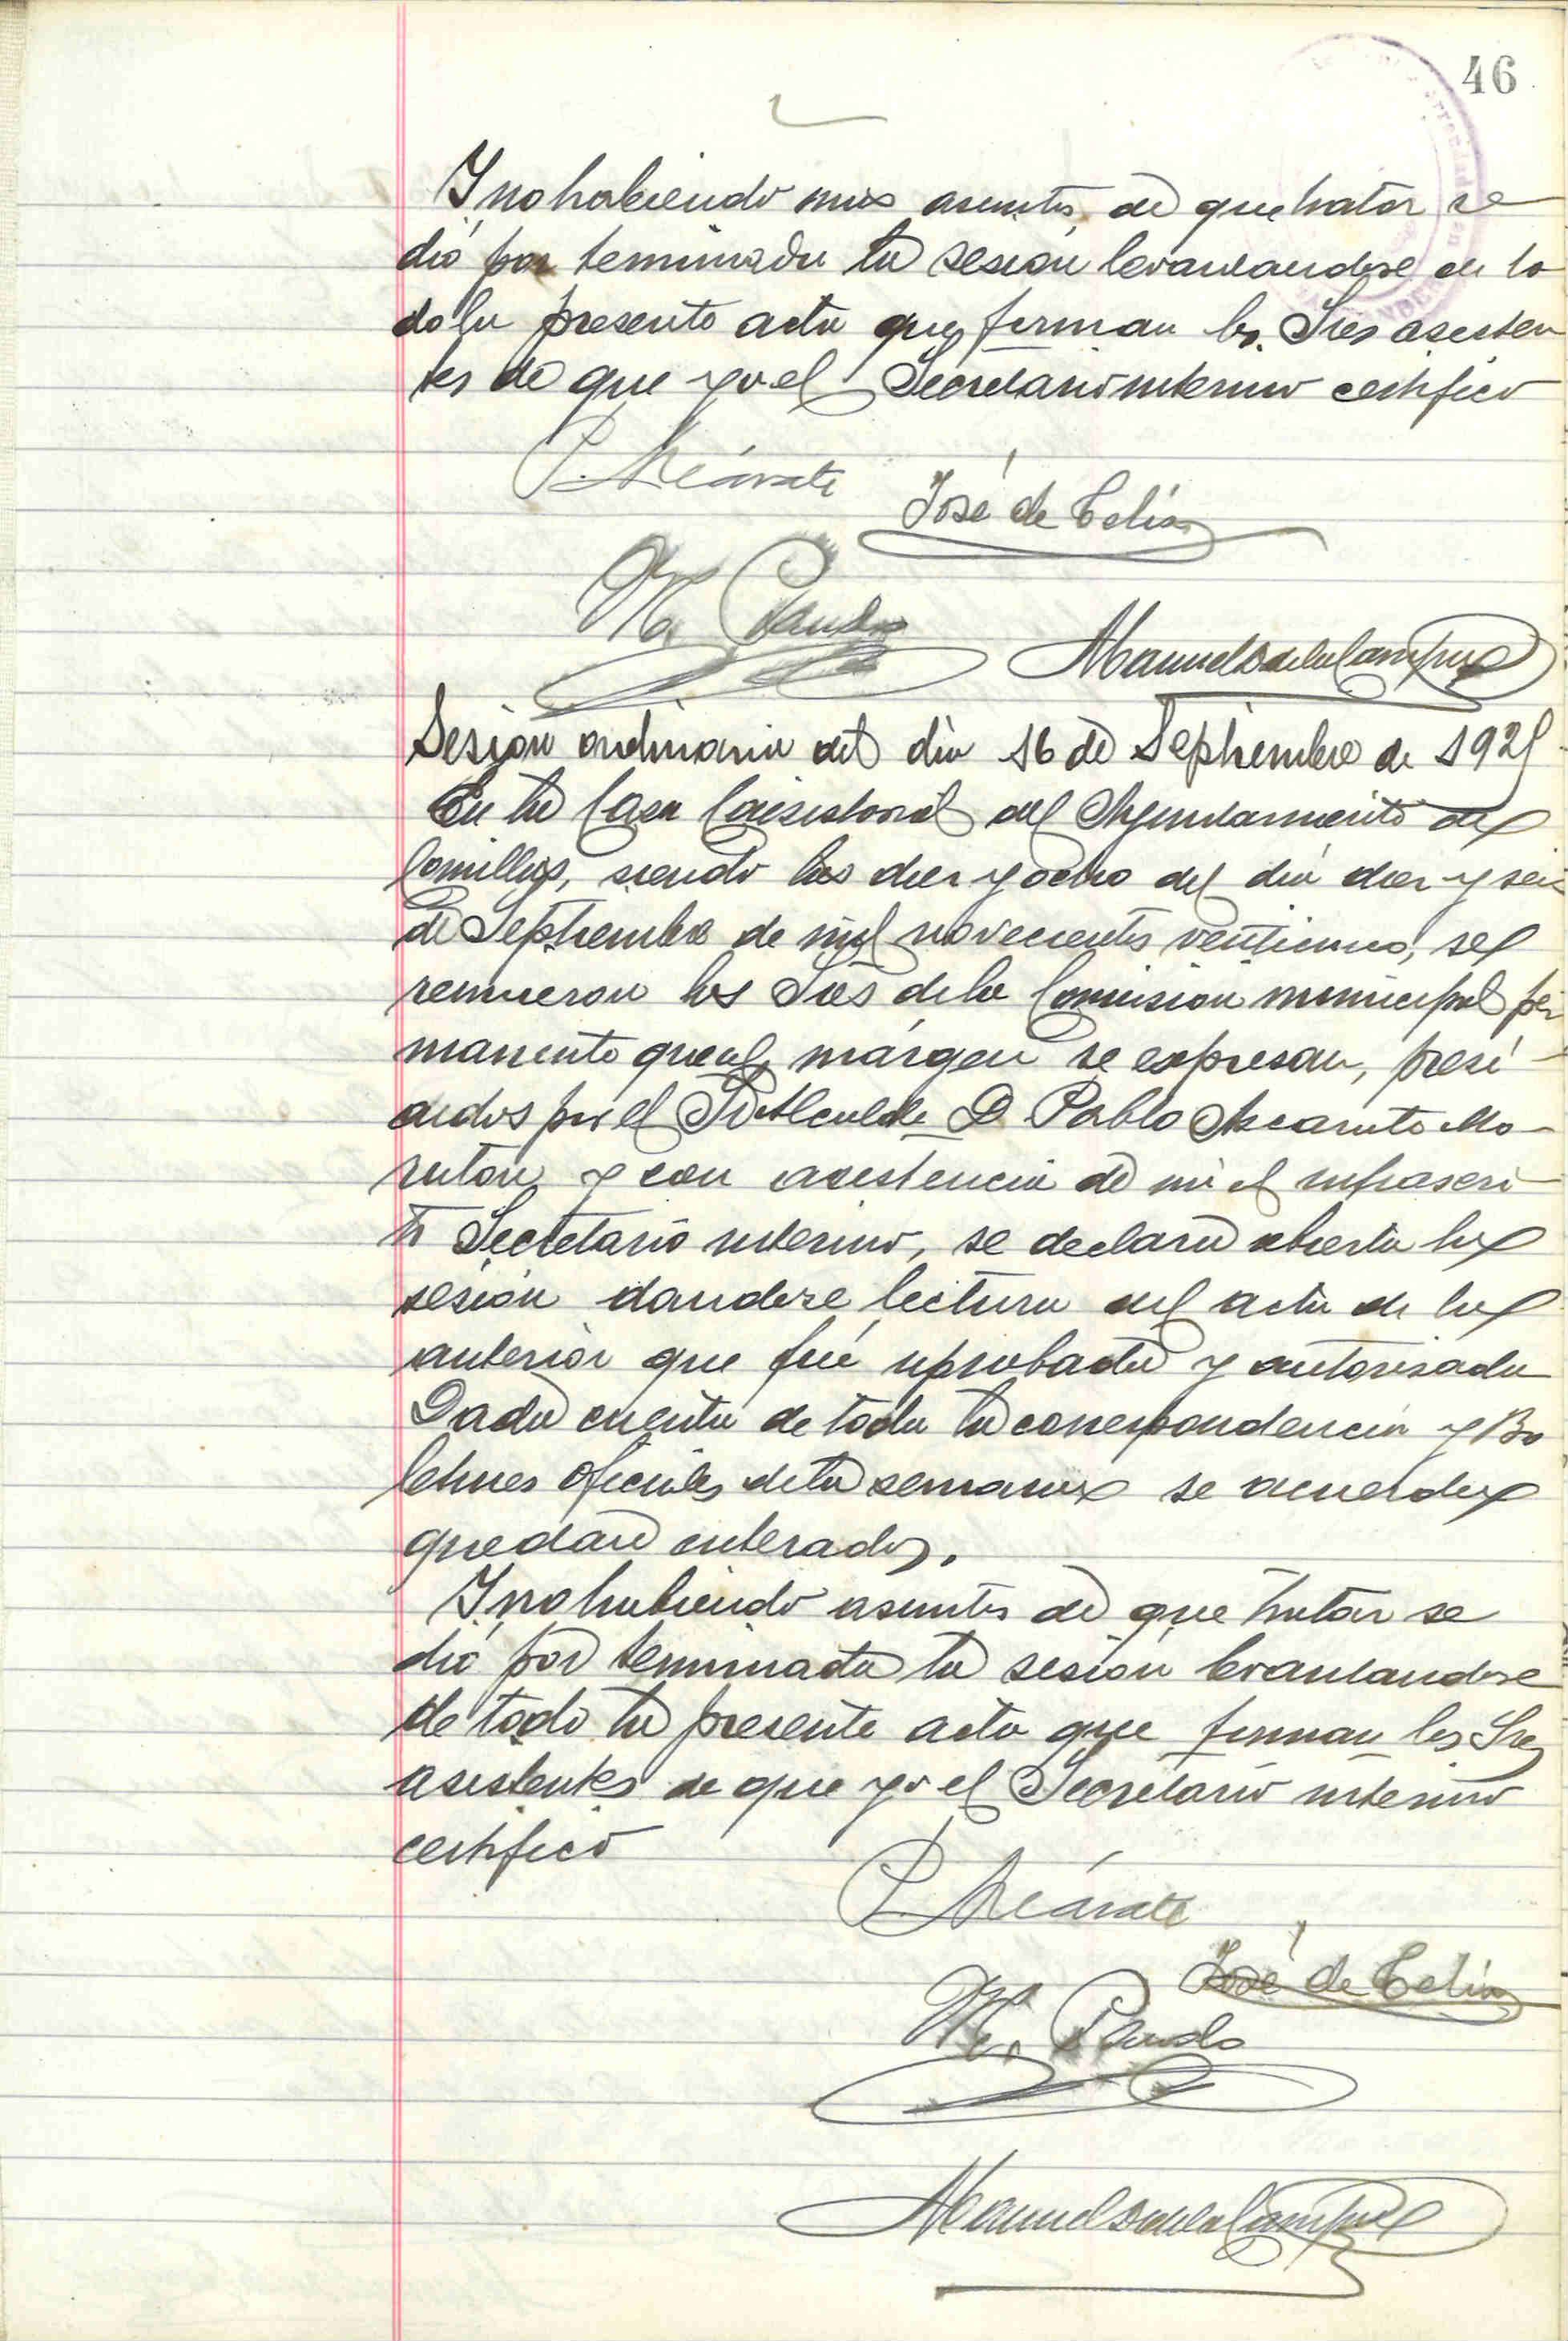 46
Y no habiendo mas asuntos de que tratar se
dió por terminada la sesión levantandose de to
do la presente acta que firman los Sres asisten
tes de que yo el Secretario interino certifico
P. Acárate
José de Celis
M. Pando
Manuel S de la Campa
Sesion ordinaria del dia 16 de Septiembre de 1925
En la Casa Consistorial del Ayuntamiento de
Comillas, siendo las diez y ocho del dia diez y seis
de Septiembre de mil novecientos veinticinco, se
reunieron los Sres de la Comision municipal per
manente que al márgen se expresan, presi-
didos por el Sr Alcalde D. Pablo Acarate Mo-
ratón y con asistencia de mi el infrascri-
to Secretario interino, se declara abierta la
sesión dandose lectura del acta de la
anterior que fué aprobada y autorisada
Dada cuenta de toda la correspondencia y Bo
letines oficiales de la semana se acuerda
quedar enterados.
Y no habiendo asuntos de que tratar se
dió por terminada la sesión levantandose
de todo la presente acta que firman los Sres
asistentes de que yo el Secretario interino
certifico
P. Acárate
José de Celis
M. Pando
Manuel S de la Campa